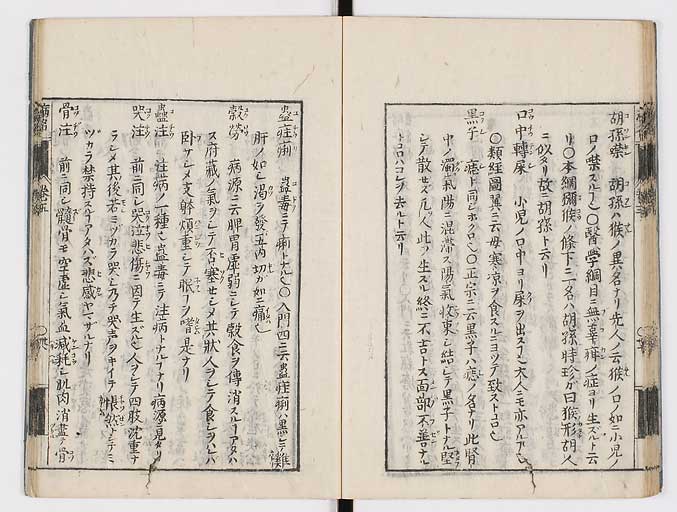 胡孫噤 胡孫ハ猴ノ異名ナリ先人ノ云猴ノ口ノ如ニ小児ノ
口ノ噤スルナ〇醫學綱目ニ無辜疳ノ症ヨリ生ズルト云
リ〇本綱獼猴ノ條下ニ一名ハ胡孫時珍ガ曰猴形胡人
ニ似タリ故ニ胡孫ト云リ
口中轉屎 小児ノ口中ヨリ屎ヲ出スナ大人ニモ亦アル
〇類經圖翼ニ云母寒凉ヲ食スルニヨツテ致ストコロ
黒子 痣ト同シホクロ〇正宗ニ云黒子ハ痣ノ名ナリ此腎
中ノ濁氣陽ニ混滞ス陽氣收束シ結シテ黒子トナル堅
シテ散セズ凡人此ヲ生ズル終ニ不吉トス面部不善ナル
トコロハコレヲ去ルト云リ
蠱疰痢 蠱毒ニテ痢トナル〇入門四ニ云蠱疰痢ハ黒シテ雞
肝ノ如シ渇ヲ發五内切カ如ニ痛
穀勞 病源ニ云脾胃虚弱ニシテ穀食ヲ傳消スルアタハ
ズ府藏ノ氣ヲシテ否塞セシメ其状人ヲシテ食シヲハレハ
卧セシメ支幹煩重シテ眠ヲ嗜是ナリ
蠱注 注病ノ一種蠱毒ニテ注病トナルナリ病源ニ見タリ
哭注 前ニ同シ哭泣悲傷ニ因テ生ズ人ヲシテ四肢沈重ナ
ラシメ其後若ミツカラ哭シ乃チ哭声ヲキイテ悵然トシテミ
ヅカラ禁持スアタハズ悲感ヤマザルナリ
骨注 前ニ同シ髓骨モ空虚シ氣血減耗シ肌肉消盡ク骨